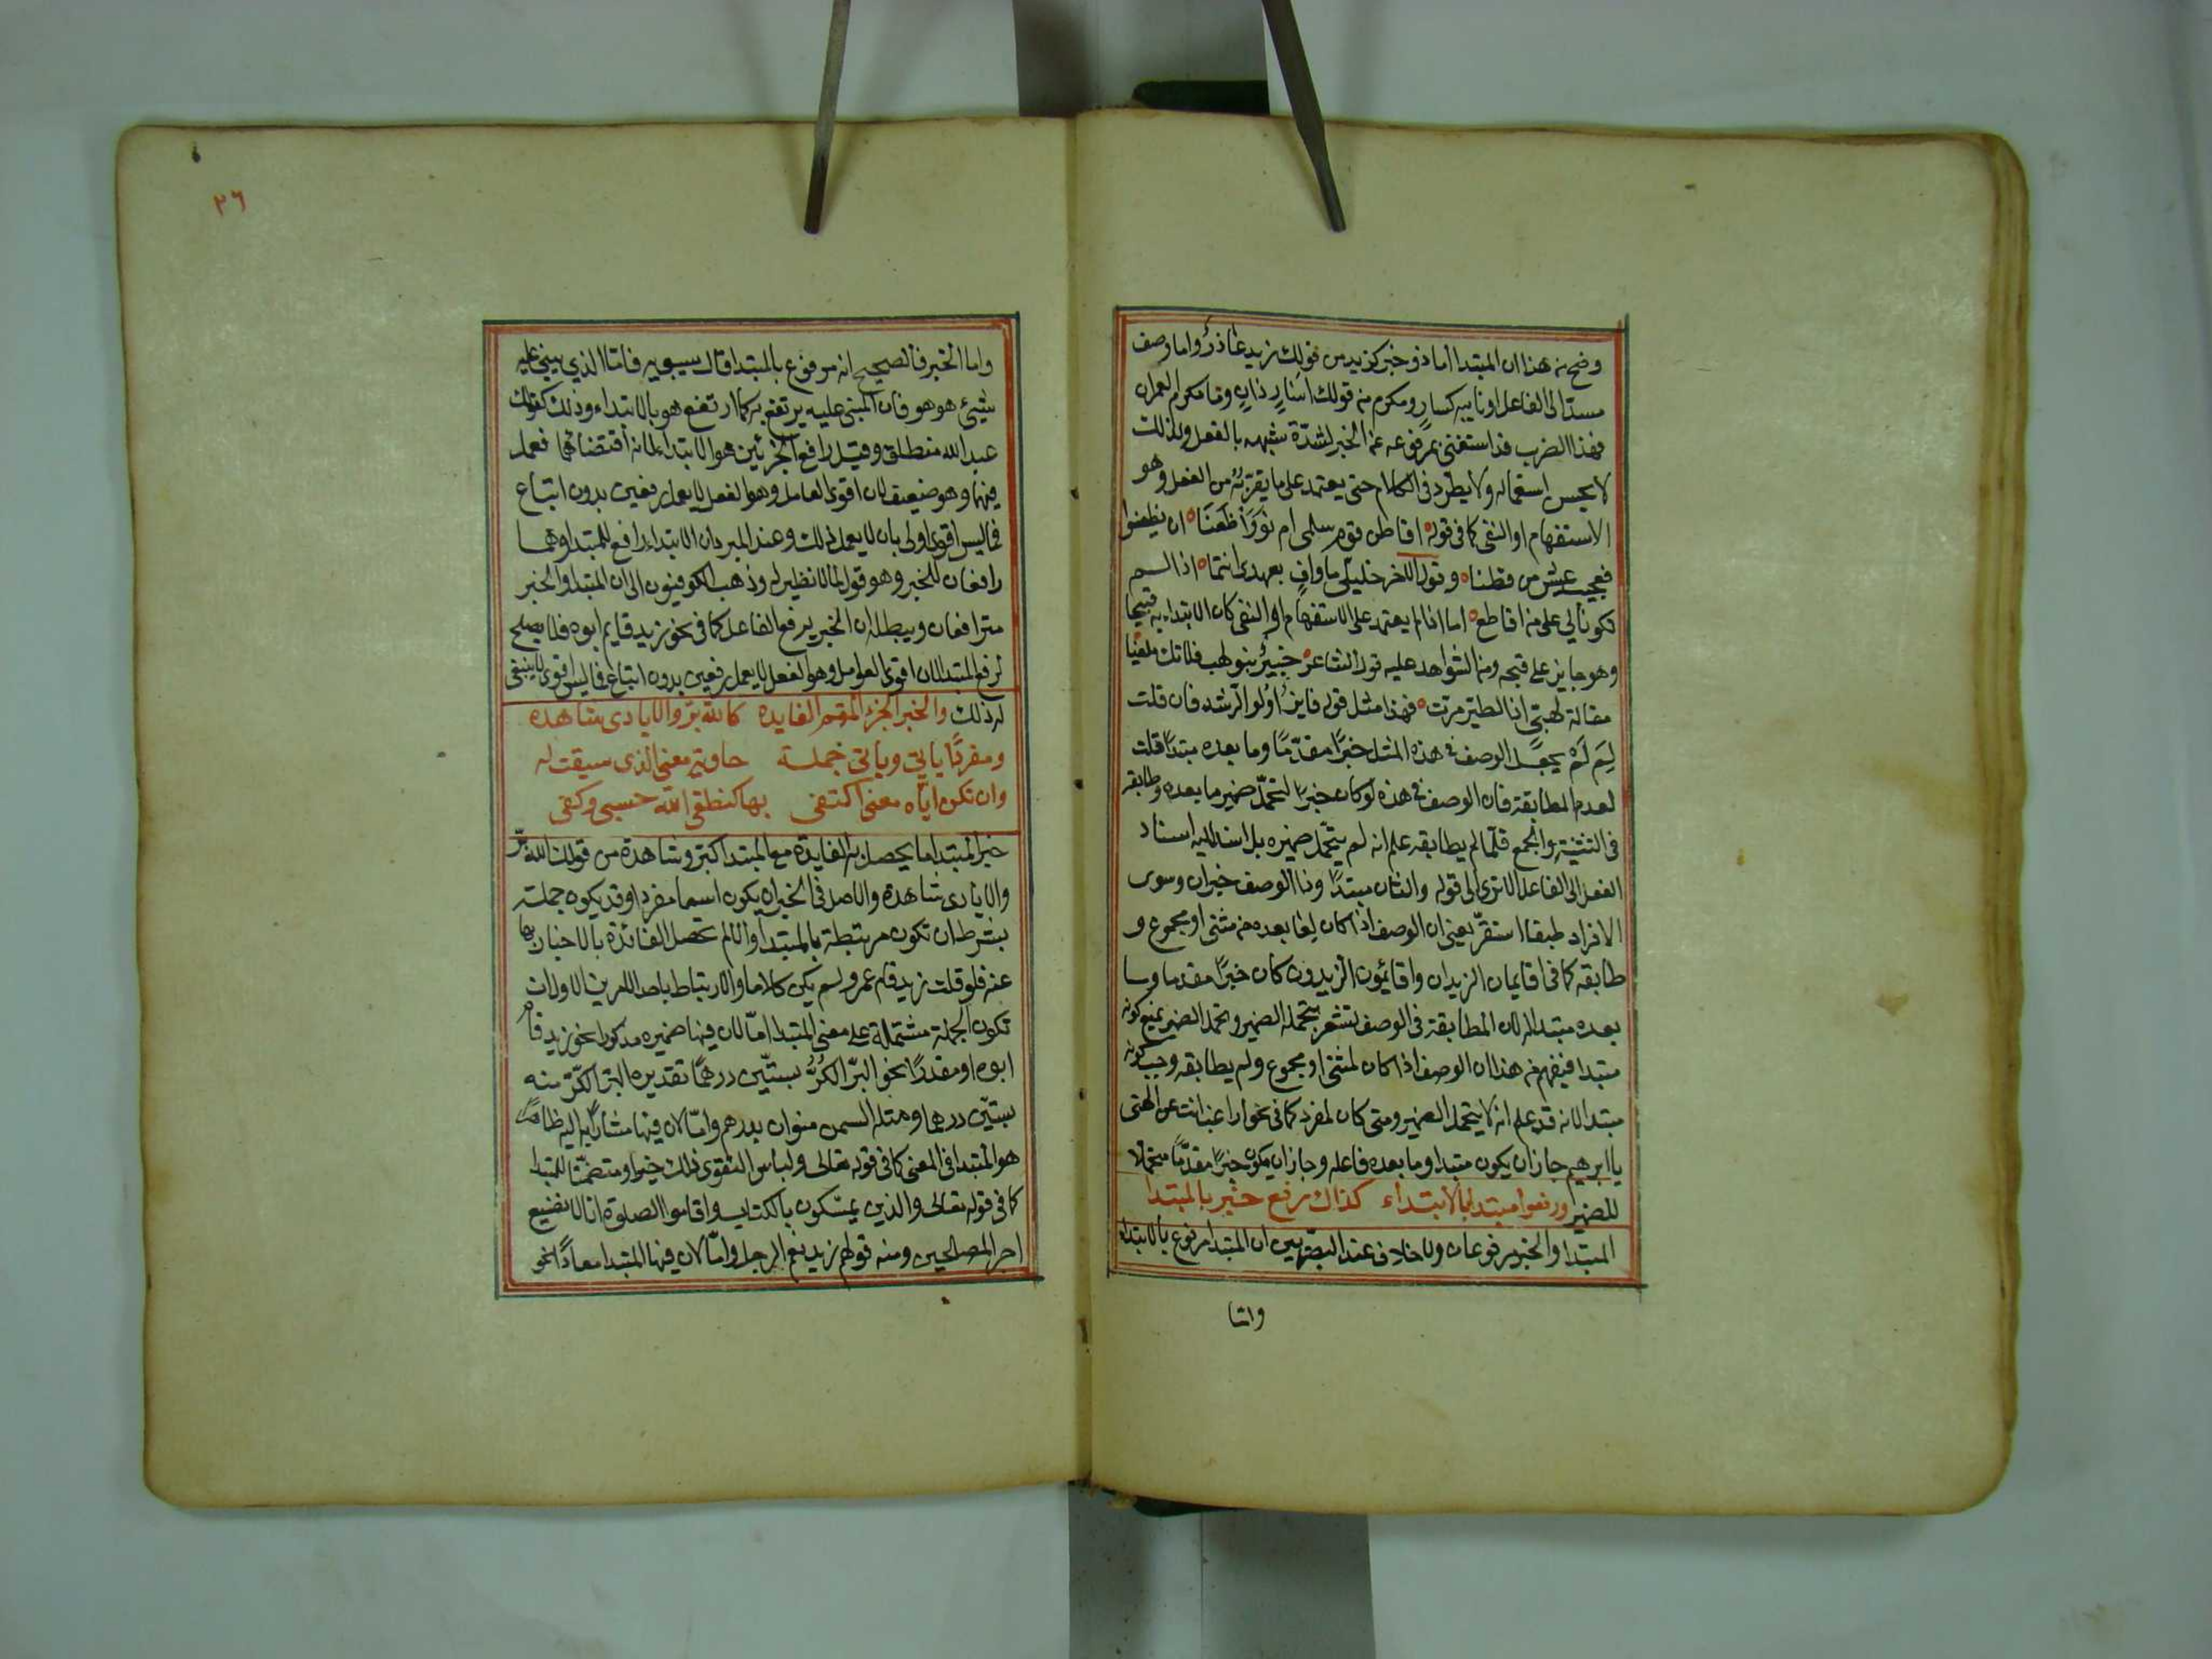 وضح من هذا ان المبتدا اما ذو خبر كزيد من قولك زيد عاذر واما وصف
مسند الى الفاعل او نايبه كسار ومكرم من قولك اسار ذان وما مكرم العمران
فهذا الضرب قد استغنى بمرفوعه عن الخبر لشدة شبهه بالفعل ولذلك
لا يحسن استعماله ولا يطرد فى الكلام حتى يعتمد على ما يقربه من الفعل وهو
الاستفهام او النفى كما فى قوله اقاطن قوم سلمى ام نووا ظعنا ان يظعنوا
فعجيب عيش من قطنا وقول الاخر خليلي ما واف بعهدى انتما اذا لم
تكونا لي على من اقاطع اما اذا لم يعتمد على الاستفهام او النفى كان الابتداء به قبيحا
وهو جايز على قبحه ومن الشواهد عليه قول الشاعر خبير بنو لهب فلا تك ملغيا
مقالة لهبى اذا الطير مرت فهذا مثل قوله فايز اولو الرشد فان قلت
لم لم يجعل الوصف فى هذه المثل خبرا مقدما وما بعده مبتدا قلت
لعدم المطابقة فان الوصف فى هذه لو كان خبرا لتحمل ضمير ما بعده وطابقه
فى التثنية والجمع فلما لم يطابقه علم انه لم يتحمل ضميره بل اسند اليه اسناد
الفعل الى الفاعل الا ترى الى قوله والثان مبتدا وذا الوصف خبر ان وسوى
الافراد طبقا استقر يعنى ان الوصف اذا كان لما بعده من مثنى او مجموع و
طابقه كما فى اقايمان الزيدان واقايمون الزيدون كان خبرا مقدما وما
بعده مبتدا لان المطابقة فى الوصف تشعر بتحمله الضمير وتحمل الضمير يمنع كونه
مبتدا فيفهم من هذا ان الوصف اذا كان لمثنى او مجموع ولم يطابقه وجب كونه
مبتدا لانه قد علم انه لا يتحمل الضمير ومتى كان لمفرد كما فى نحو اراغب انت عن الهتى
يا ابرهيم جاز ان يكون مبتدا وما بعده فاعله وجاز ان يكون خبرا مقدما متحملا
للضمير ورفعوا مبتدا بالابتداء كذاك رفع خبر بالمبتدا
المبتدا والخبر مرفوعان ولا خلاف عند البصريين ان المبتدا مرفوع بالابتداء
واما
٢٦
واما الخبر فالصحيح انه مرفوع بالمبتدا قال سيبويه فاما الذي يبنى عليه
شيئ هو هو فان المبنى عليه يرتفع به كما ارتفع هو بالابتداء وذلك كقولك
عبد الله منطلق وقيل رافع الجزئين هو الابتداء لانه اقتضاهما فعمل
فيهما وهو ضعيف لان اقوى العوامل وهو الفعل لا يعمل رفعين بدون اتباع
فما ليس اقوى اولى بان لا يعمل ذلك وعند المبرد ان الابتداء رافع للمبتدا وهما
رافعان للخبر وهو قول بما لا نظير له وذهب الكوفيون الى ان المبتدا والخبر
مترافعان ويبطله ان الخبر يرفع الفاعل كما فى نحو زيد قايم ابوه فلا يصلح
لرفع المبتدا لان اقوى العوامل وهو الفعل لا يعمل رفعين بدون اتباع فما ليس اقوى لا ينبغى
له ذلك والخبر الجزء المتم الفايده كالله بر والايادى شاهده
ومفردا ياتي وياتى جملة حاوية معنى الذى سيقت له
وان تكن اياه معنى اكتفى بها كنطقى الله حسبى وكفى
خبر المبتدا ما يحصل به الفايدة مع المبتدا كبر وشاهدة من قولك الله بر
والايادى شاهدة والاصل فى الخبر ان يكون اسما مفردا وقد يكون جملة
بشرط ان تكون مرتبطة بالمبتدا والا لم تحصل الفائدة بالاخبار بها
عنه فلو قلت زيد قام عمرو لم يكن كلاما والارتباط باحد امرين الاول ان
تكون الجملة مشتملة على معنى المبتدا اما لان فيها ضميره مذكورا نحو زيد قام
ابوه او مقدرا نحو البر الكر بستين درهما تقديره البر الكر منه
بستين درهما ومثله السمن منوان بدرهم واما لان فيها مشارا به اليه
هو المبتدا فى المعنى كما فى قوله تعالى ولباس التقوى ذلك خير او متضمنا للمبتدا
كما فى قوله تعالى والذين يمسكون بالكتاب واقاموا الصلوة انا لا نضيع
اجر المصلحين ومنه قولهم زيد نعم الرجل واما لان فيها المبتدا معادا نحو